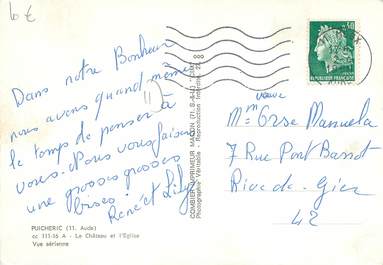 6 €
Dans notre Bonheur
nous avons quand même
le temps de penser à
vous. Nous vous faisons
une grosses grosses
bises.
René et Lily
11
PUICHERIC (11. Aude)
cc 111-16 A - Le Château et l'Eglise
Vue aérienne
COMBIER IMPRIMEUR MACON (71. S.-&-L.)
Photographie Véritable - Reproduction Interdite
0,30
REPUBLIQUE FRANÇAISE
veuve
Mme Orse Manuela
7 Rue Pont Barrot
Rive-de-Gier
42